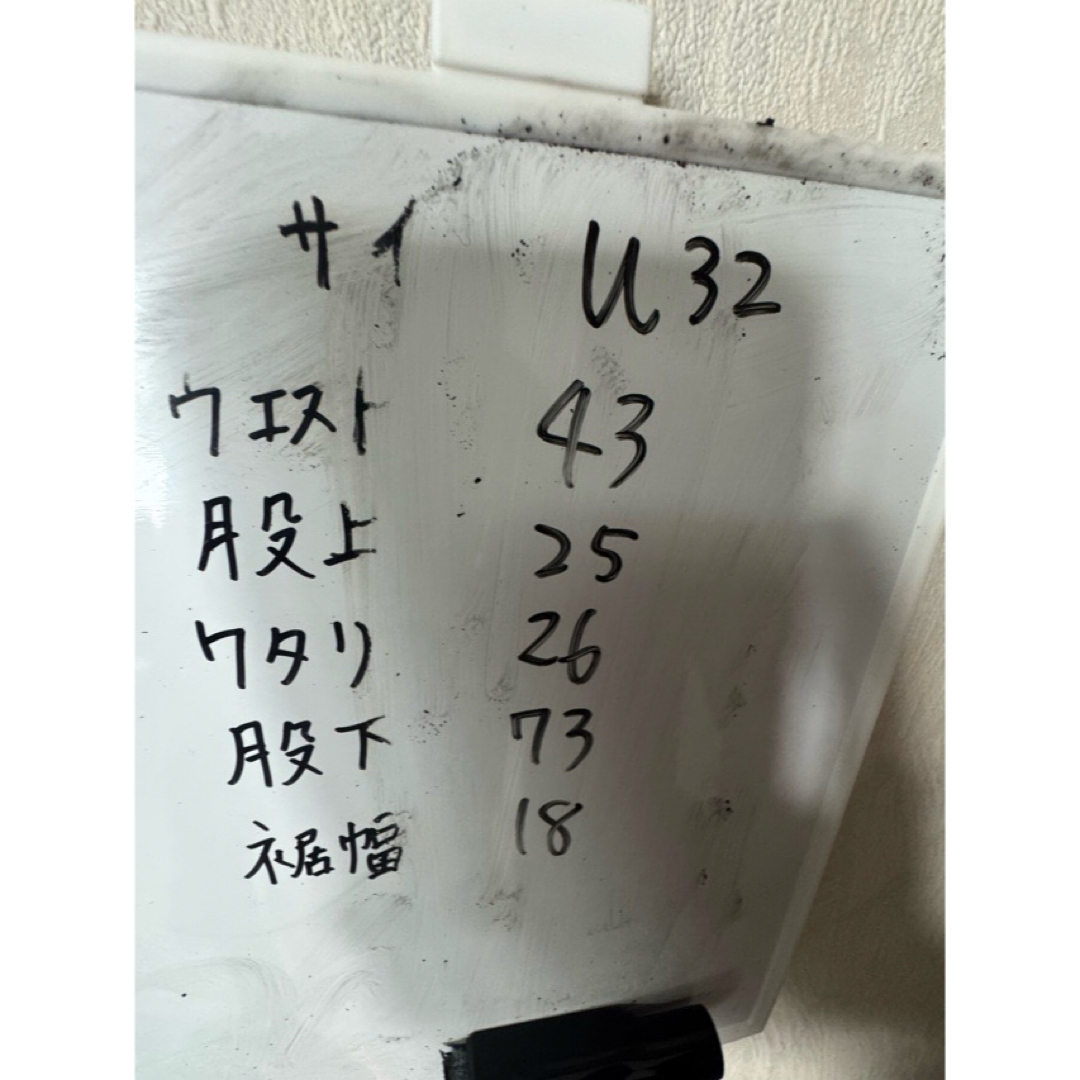 サイ U32
ウエスト 43
股上 25
ワタリ 26
股下 73
裾幅 18